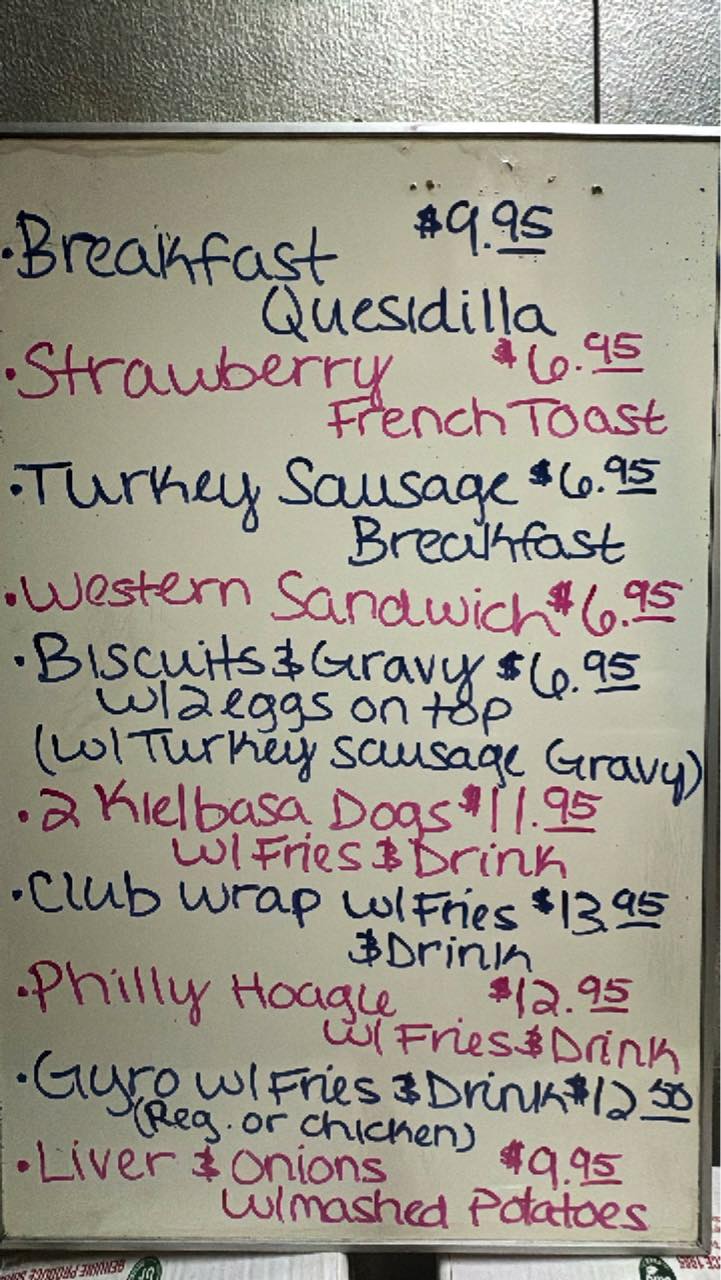 ·Breakfast $9.95
Quesidilla
·Strawberry $6.95
French Toast
·Turkey Sausage $6.95
Breakfast
·Western Sandwich $6.95
·Biscuits & Gravy $6.95
w/2 eggs on top
(w/ Turkey sausage Gravy)
·2 Kielbasa Dogs $11.95
w/ Fries & Drink
·Club wrap w/ Fries $13.95
& Drink
·Philly Hoagie $12.95
w/ Fries & Drink
·Gyro w/ Fries & Drink $12.50
(Reg. or chicken)
·Liver & onions $9.95
w/mashed Potatoes
GENUINE PRODUCE